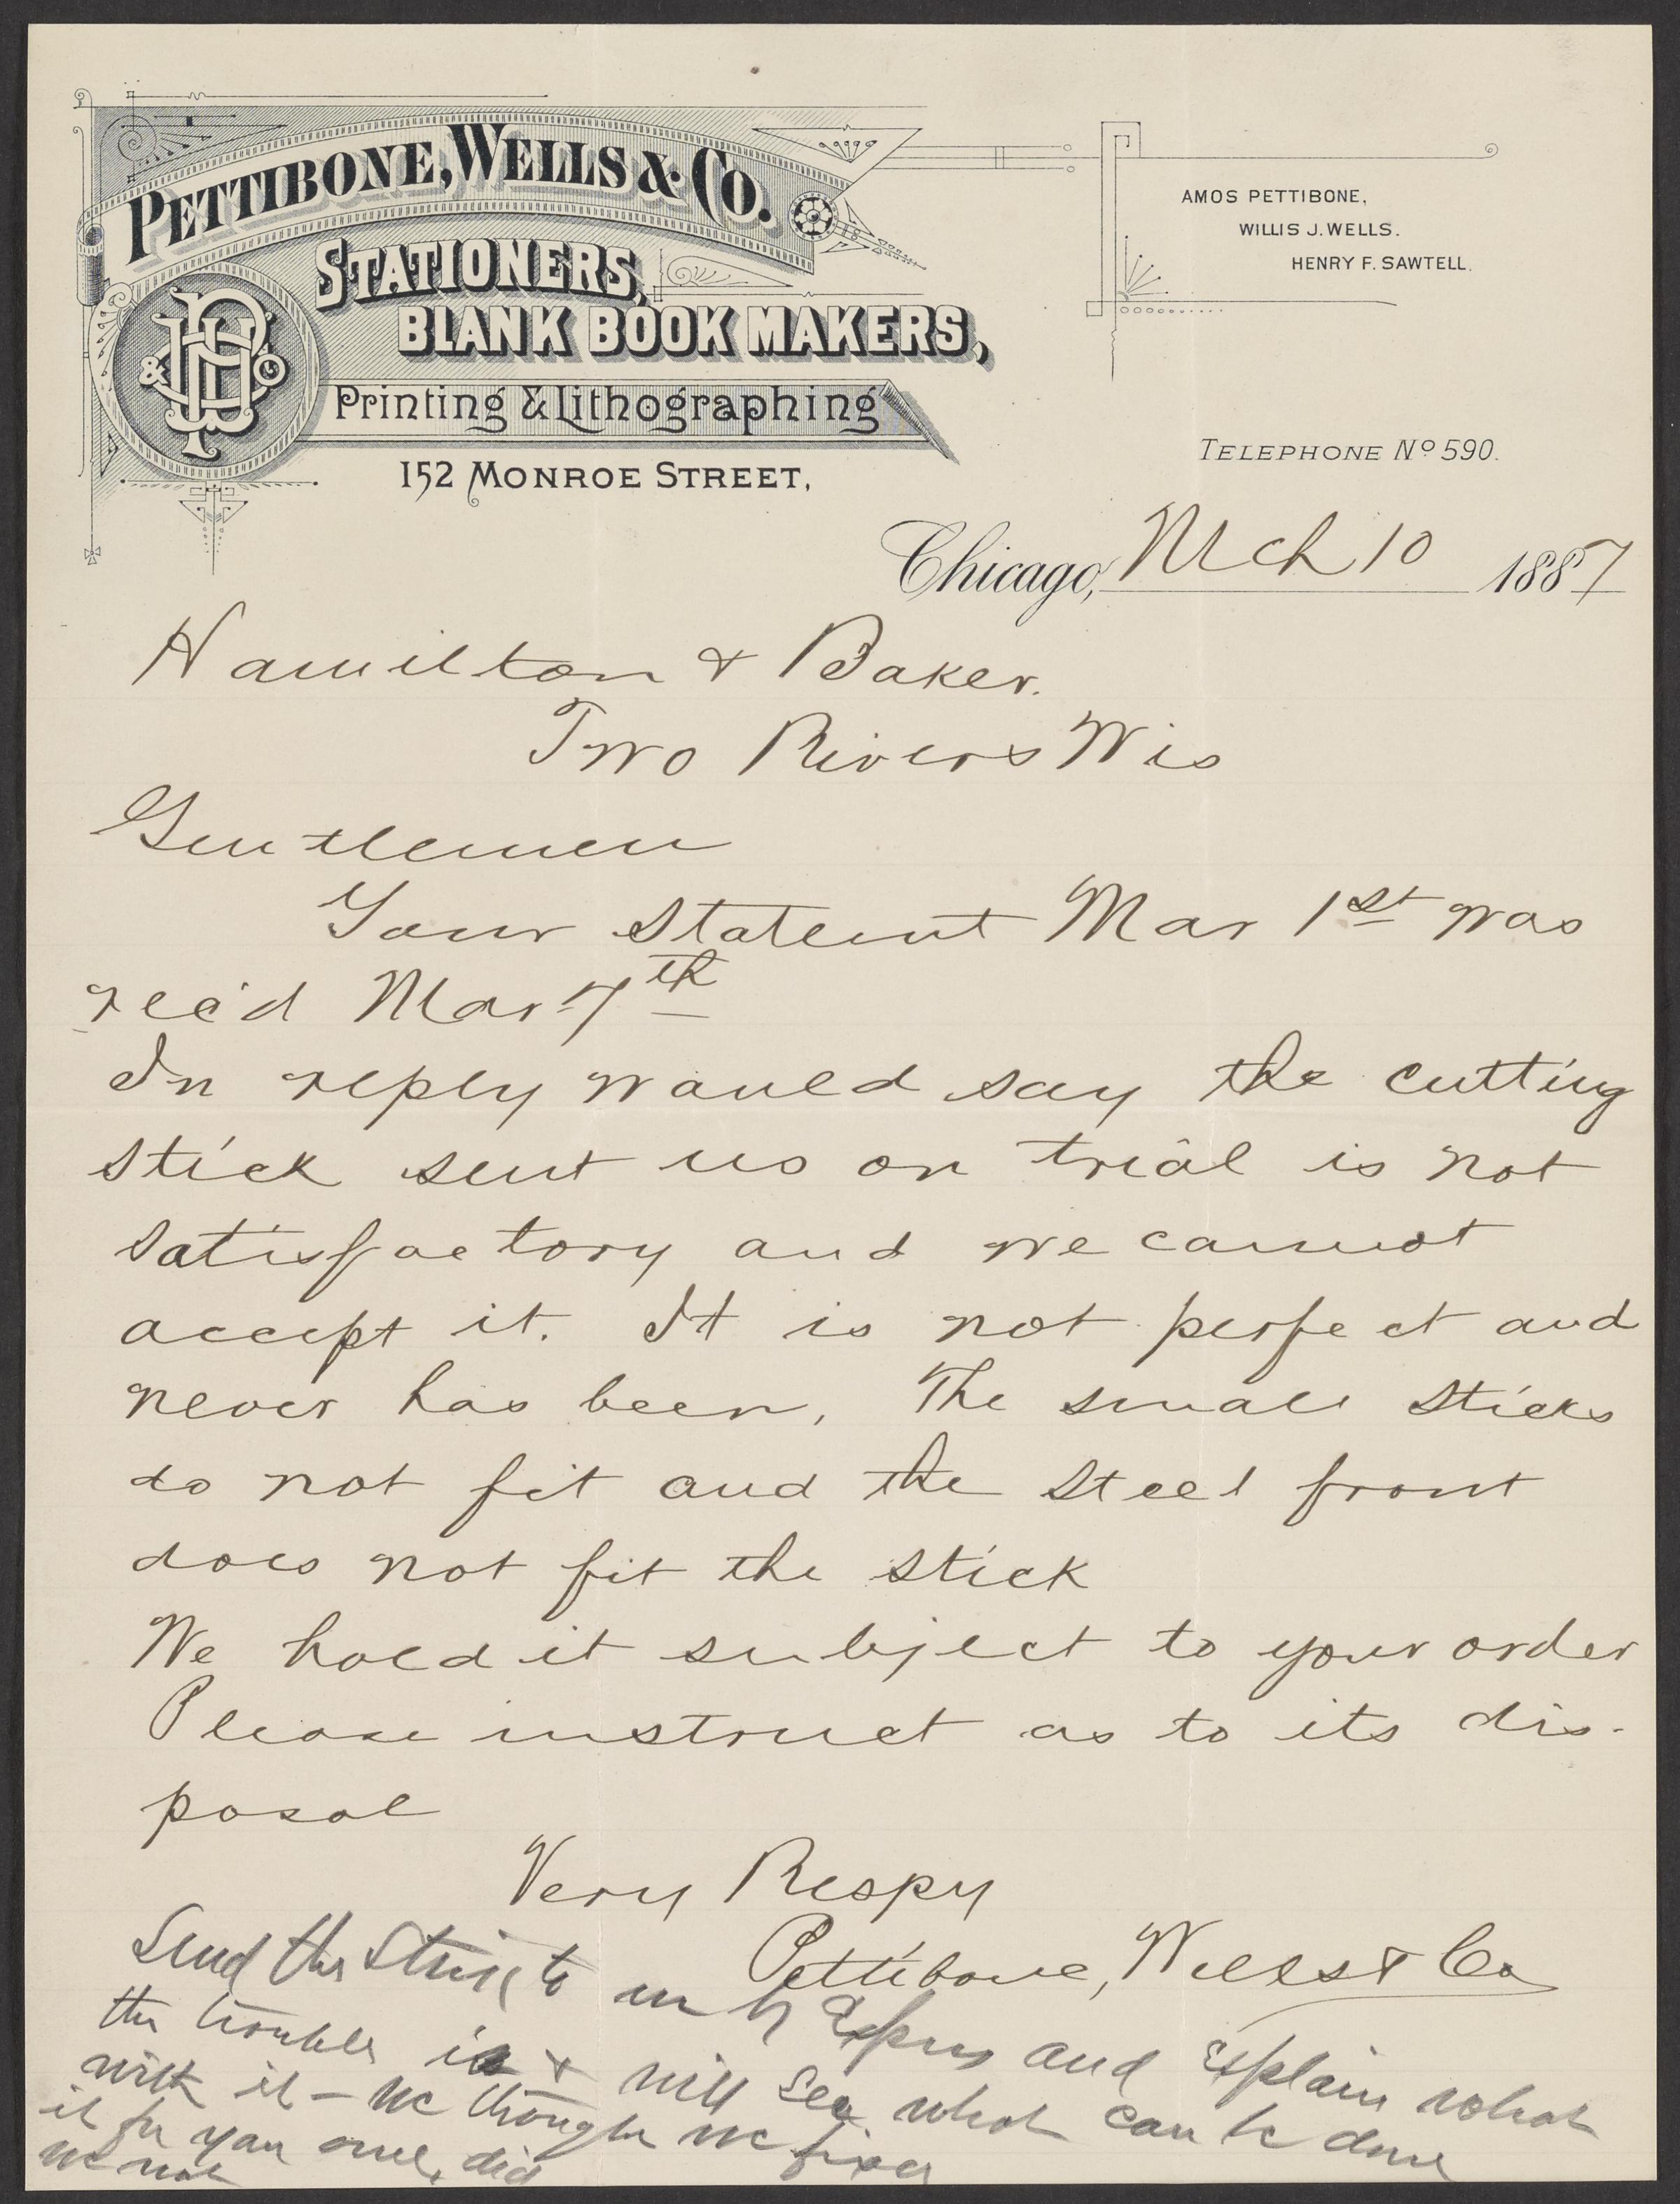 PETTIBONE, WELLS & CO.
STATIONERS,
BLANK BOOK MAKERS,
Printing & Lithographing
152 MONROE STREET,
AMOS PETTIBONE,
WILLIS J. WELLS.
HENRY F. SAWTELL.
TELEPHONE No 590.
Chicago, Mch 10 1887
Hamilton & Baker.
Two Rivers Wis
Gentlemen
Your Statemt Mar 1st was
rec'd Mar 7th
In reply would say the cutting
stick sent us on trial is not
satisfactory and we cannot
accept it. It is not perfect and
never has been. The small sticks
do not fit and the steel front
does not fit the stick
We hold it subject to your order
Please instruct as to its dis-
posal
Very Respy
Pettibone, Wells & Co
Send the Stick to us by Express and explain what
the trouble is & will see what can be done
with it - we thought we fixed
it for you once, did
we not